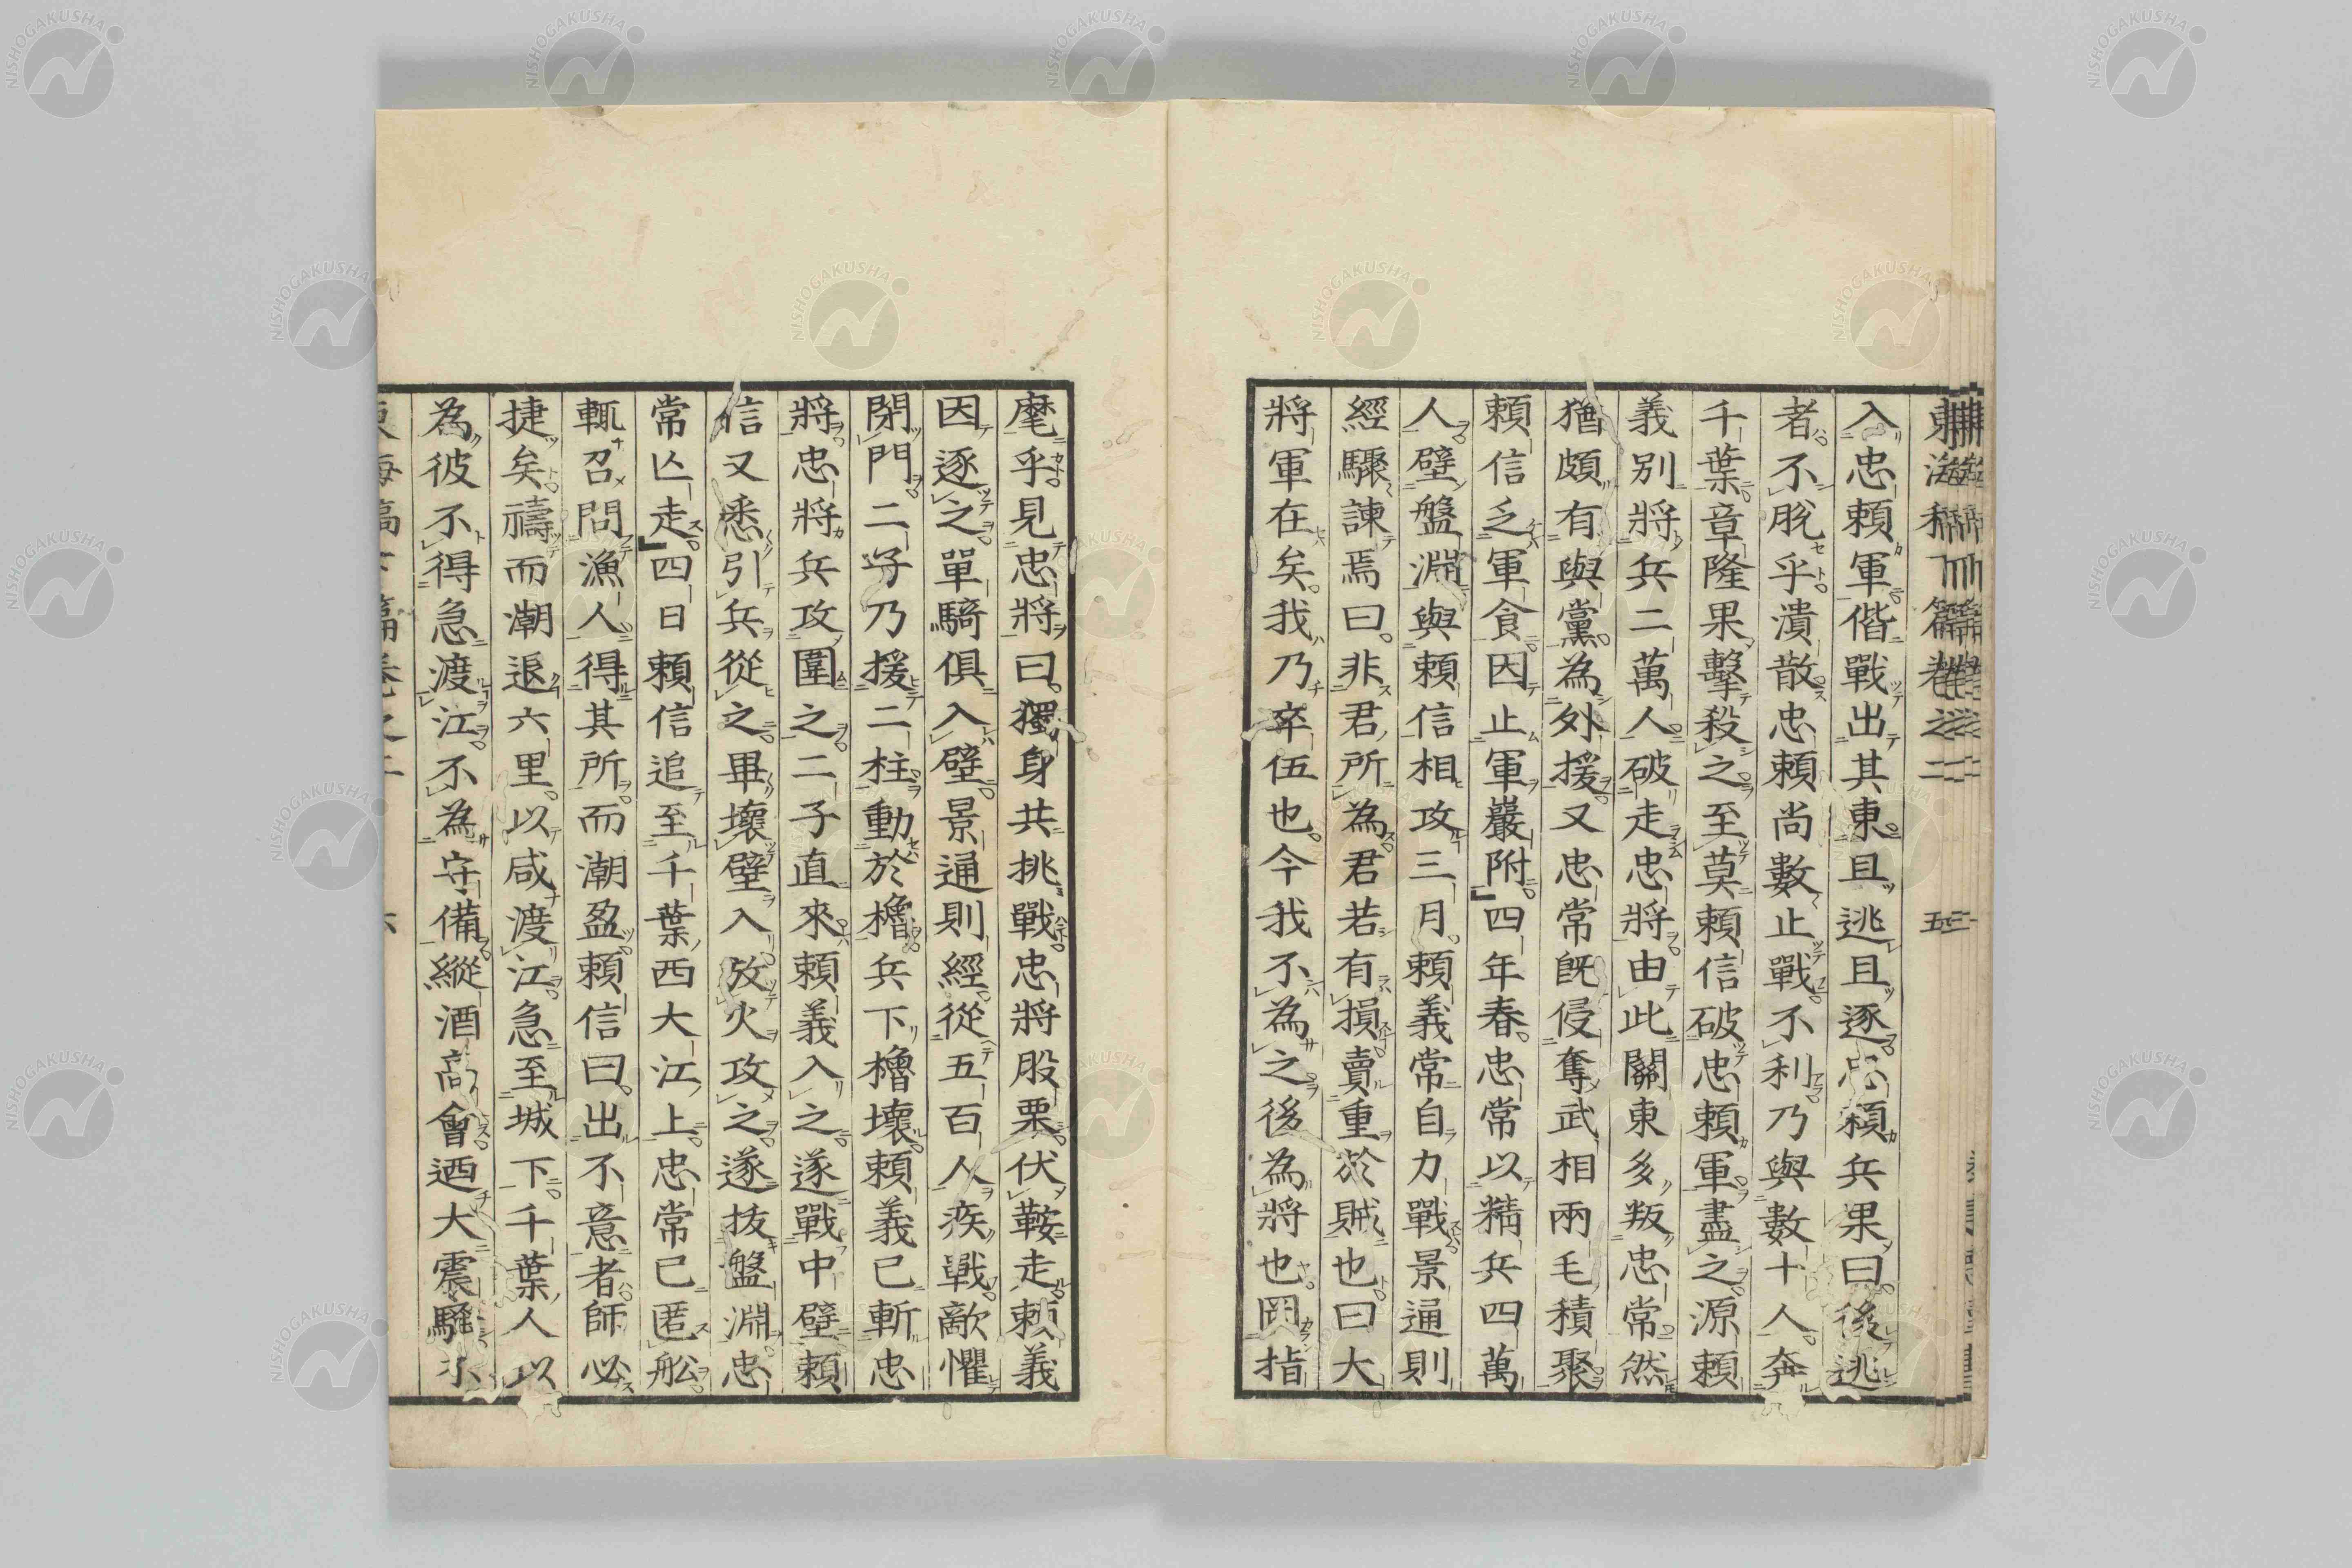 入忠頼軍偕戰出其東且逃且逐忠頼兵果曰後逃
者不脱乎潰散忠頼尚數止戰不利乃與數十人奔
千葉章隆果擊殺之至莫頼信破忠頼軍盡之源頼
義別將兵二萬人破走忠將由此關東多叛忠常然
猶頗有與黨為外援又忠常既侵奪武相兩毛積聚
頼信乏軍食因止軍巖附四年春忠常以精兵四萬
人壁盤淵與頼信相攻三月頼義常自力戰景通則
經驟諫焉曰非君所為君若有損賣重於賊也曰大
將軍在矣我乃卒伍也今我不為之後為將也罔指
麾乎見忠將曰獨身共挑戰忠將股栗伏鞍走頼義
因逐之單騎俱入壁景通則經從五百人疾戰敵懼
閉門二子乃援二柱動於櫓兵下櫓壞頼義已斬忠
將忠將兵攻圍之二子直來頼義入之遂戰中壁頼
信又悉引兵從之畢壞壁入放火攻之遂抜盤淵忠
常亾走四日頼信追至千葉西大江上忠常已匿舩
輒召問漁人得其所而潮盈頼信曰出不意者師必
捷矣禱而潮退六里以咸渡江急至城下千葉人以
為彼不得急渡江不為守備縱酒高會迺大震騷
NISHOGAKUSHA